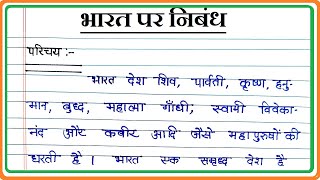 भारत पर निबंध
परिचय :-
भारत देश शिव, पार्वती, कृष्ण, हनु-
मान, बुध्द, महात्मा गाँधी, स्वामी विवेका-
नंद और कबीर आदि जैसे महापुरुषों की
धरती है । भारत एक समृध्द देश है